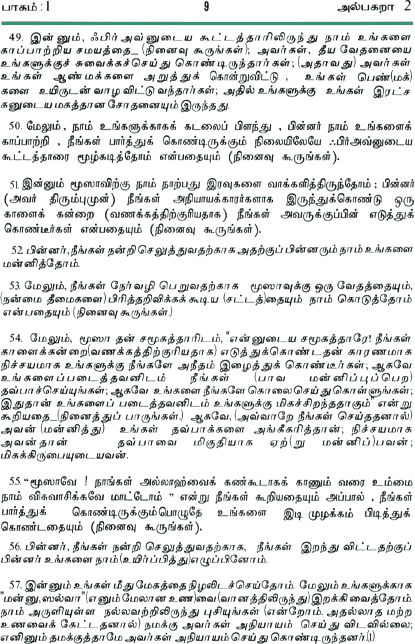 பாகம் : 1 9 அல்பகறா 2
49. இன்னும், ஃபிர்அவ்னுடைய கூட்டத்தாரிலிருந்து நாம் உங்களை
காப்பாற்றிய சமயத்தை_ (நினைவு கூருங்கள்); அவர்கள், தீய வேதனையை
உங்களுக்குச் சுவைக்கச்செய்து கொண்டிருந்தார்கள்; (அதாவது) அவர்கள்
உங்கள் ஆண்மக்களை அறுத்துக் கொன்றுவிட்டு, உங்கள் பெண்(மக்)
களை உயிருடன் வாழ விட்டு வந்தார்கள்; அதில் உங்களுக்கு உங்கள் இரட்ச
கனுடைய மகத்தான சோதனையும் இருந்தது.
50. மேலும், நாம் உங்களுக்காகக் கடலைப் பிளந்து, பின்னர் நாம் உங்களைக்
காப்பாற்றி, நீங்கள் பார்த்துக் கொண்டிருக்கும் நிலையிலேயே ஃபிர்அவ்னுடைய
கூட்டத்தாரை மூழ்கடித்தோம் என்பதையும் (நினைவு கூருங்கள்).
51. இன்னும் மூஸாவிற்கு நாம் நாற்பது இரவுகளை வாக்களித்திருந்தோம்; பின்னர்
(அவர் திரும்புமுன்) நீங்கள் அநியாயக்காரர்களாக இருந்துகொண்டு ஒரு
காளைக் கன்றை (வணக்கத்திற்குரியதாக) நீங்கள் அவருக்குப்பின் எடுத்துக்
கொண்டீர்கள் என்பதையும் (நினைவு கூருங்கள்).
52. பின்னர், நீங்கள் நன்றி செலுத்துவதற்காக அதற்குப் பின்னரும் நாம் உங்களை
மன்னித்தோம்.
53. மேலும், நீங்கள் நேர்வழி பெறுவதற்காக மூஸாவுக்கு ஒரு வேதத்தையும்,
(நன்மை தீமைகளை) பிரித்தறிவிக்கக் கூடிய (சட்டத்)தையும் நாம் கொடுத்தோம்
என்பதையும் (நினைவு கூருங்கள்.)
54. மேலும், மூஸா தன் சமூகத்தாரிடம், "என்னுடைய சமூகத்தாரே! நீங்கள்
காளைக்கன்றை(வணக்கத்திற்குரியதாக) எடுத்துக்கொண்டதன் காரணமாக
நிச்சயமாக உங்களுக்கு நீங்களே அநீதம் இழைத்துக் கொண்டீர்கள்; ஆகவே
உங்களைப்படைத்தவனிடம் நீங்கள் (பாவ மன்னிப்புப்பெற)
தவ்பாச்செய்யுங்கள்; ஆகவே உங்களை நீங்களே கொலைசெய்து கொள்ளுங்கள்;
இதுதான் உங்களைப் படைத்தவனிடம் உங்களுக்கு மிகச்சிறந்ததாகும்" என்று
கூறியதை_(நினைத்துப் பாருங்கள்.) ஆகவே, (அவ்வாறே நீங்கள் செய்ததனால்)
அவன் (மன்னித்து) உங்கள் தவ்பாக்களை அங்கீகரித்தான்; நிச்சயமாக
அவன்தான் தவ்பாவை மிகுதியாக ஏற்(று மன்னிப்)பவன்;
மிகக்கிருபையுடையவன்.
55. "மூஸாவே! நாங்கள் அல்லாஹ்வைக் கண்கூடாகக் காணும் வரை உம்மை
நாம் விசுவாசிக்கவே மாட்டோம்" என்று நீங்கள் கூறியதையும் அப்பால், நீங்கள்
பார்த்துக் கொண்டிருக்கும்பொழுதே உங்களை இடி முழக்கம் பிடித்துக்
கொண்டதையும் (நினைவு கூருங்கள்).
56. பின்னர், நீங்கள் நன்றி செலுத்துவதற்காக, நீங்கள் இறந்து விட்டதற்குப்
பின்னர் உங்களை நாம் (உயிர்ப்பித்து)எழுப்பினோம்.
57. இன்னும் உங்கள் மீது மேகத்தை நிழலிடச்செய்தோம். மேலும் உங்களுக்காக
"மன்னு, ஸல்வா" (எனும் மேலான உண)வை (வானத்திலிருந்து) இறக்கி வைத்தோம்.
நாம் அருளியுள்ள நல்லவற்றிலிருந்து புசியுங்கள் (என்றோம். அதல்லாத மற்ற
உணவைக் கேட்டதனால்) நமக்கு அவர்கள் அநியாயம் செய்து விடவில்லை;
எனினும் தமக்குத்தாமே அவர்கள் அநியாயம் செய்து கொண்டனர்.(1)